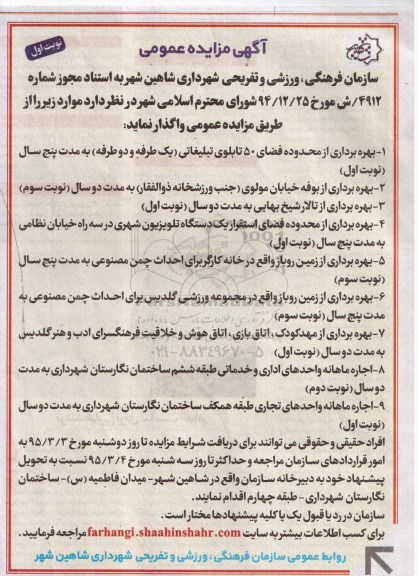 نوبت اول
آگهی مزایده عمومی
سازمان فرهنگی، ورزشی و تفریحی شهرداری شاهین شهر به استناد مجوز شماره
۴۹۱۲/ش مورخ ۹۴/۱۲/۲۵ شورای محترم اسلامی شهر در نظر دارد موارد زیر را از
طریق مزایده عمومی واگذار نماید:
۱-بهره برداری از محدوده فضای ۵۰ تابلوی تبلیغاتی (یک طرفه و دو طرفه) به مدت پنج سال
(نوبت اول)
۲-بهره برداری از بوفه خیابان مولوی (جنب ورزشخانه ذوالفقار) به مدت دو سال (نوبت سوم)
۳-بهره برداری از تالار شیخ بهایی به مدت دو سال (نوبت اول)
۴-بهره برداری از محدوده فضای استقرار یک دستگاه تلویزیون شهری در سه راه خیابان نظامی
به مدت پنج سال (نوبت اول)
۵-بهره برداری از زمین روباز واقع در خانه کارگر برای احداث چمن مصنوعی به مدت پنج سال
(نوبت سوم)
۶-بهره برداری از زمین روباز واقع در مجموعه ورزشی گلدیس برای احداث چمن مصنوعی به
مدت پنج سال (نوبت سوم)
۷-بهره برداری از مهدکودک، اتاق بازی، اتاق هوش و خلاقیت فرهنگسرای ادب و هنر گلدیس
به مدت دو سال (نوبت اول)
۸-اجاره ماهانه واحدهای اداری و خدماتی طبقه ششم ساختمان نگارستان شهرداری به مدت
دو سال (نوبت دوم)
۹-اجاره ماهانه واحدهای تجاری طبقه همکف ساختمان نگارستان شهرداری به مدت دو سال
(نوبت اول)
افراد حقیقی و حقوقی می توانند برای دریافت شرایط مزایده تا روز دوشنبه مورخ ۹۵/۳/۳ به
امور قراردادهای سازمان مراجعه و حداکثر تا روز سه شنبه مورخ ۹۵/۳/۴ نسبت به تحویل
پیشنهاد خود به دبیرخانه سازمان واقع در شاهین شهر- میدان فاطمیه (س)- ساختمان
نگارستان شهرداری - طبقه چهارم اقدام نمایند.
سازمان در رد یا قبول یک یا کلیه پیشنهادها مختار است.
برای کسب اطلاعات بیشتر به سایت farhangi.shaahinshahr.com مراجعه فرمایید.
روابط عمومی سازمان فرهنگی، ورزشی و تفریحی شهرداری شاهین شهر
۰۲۱-۸۸۳۴۹۶۷۰-۵